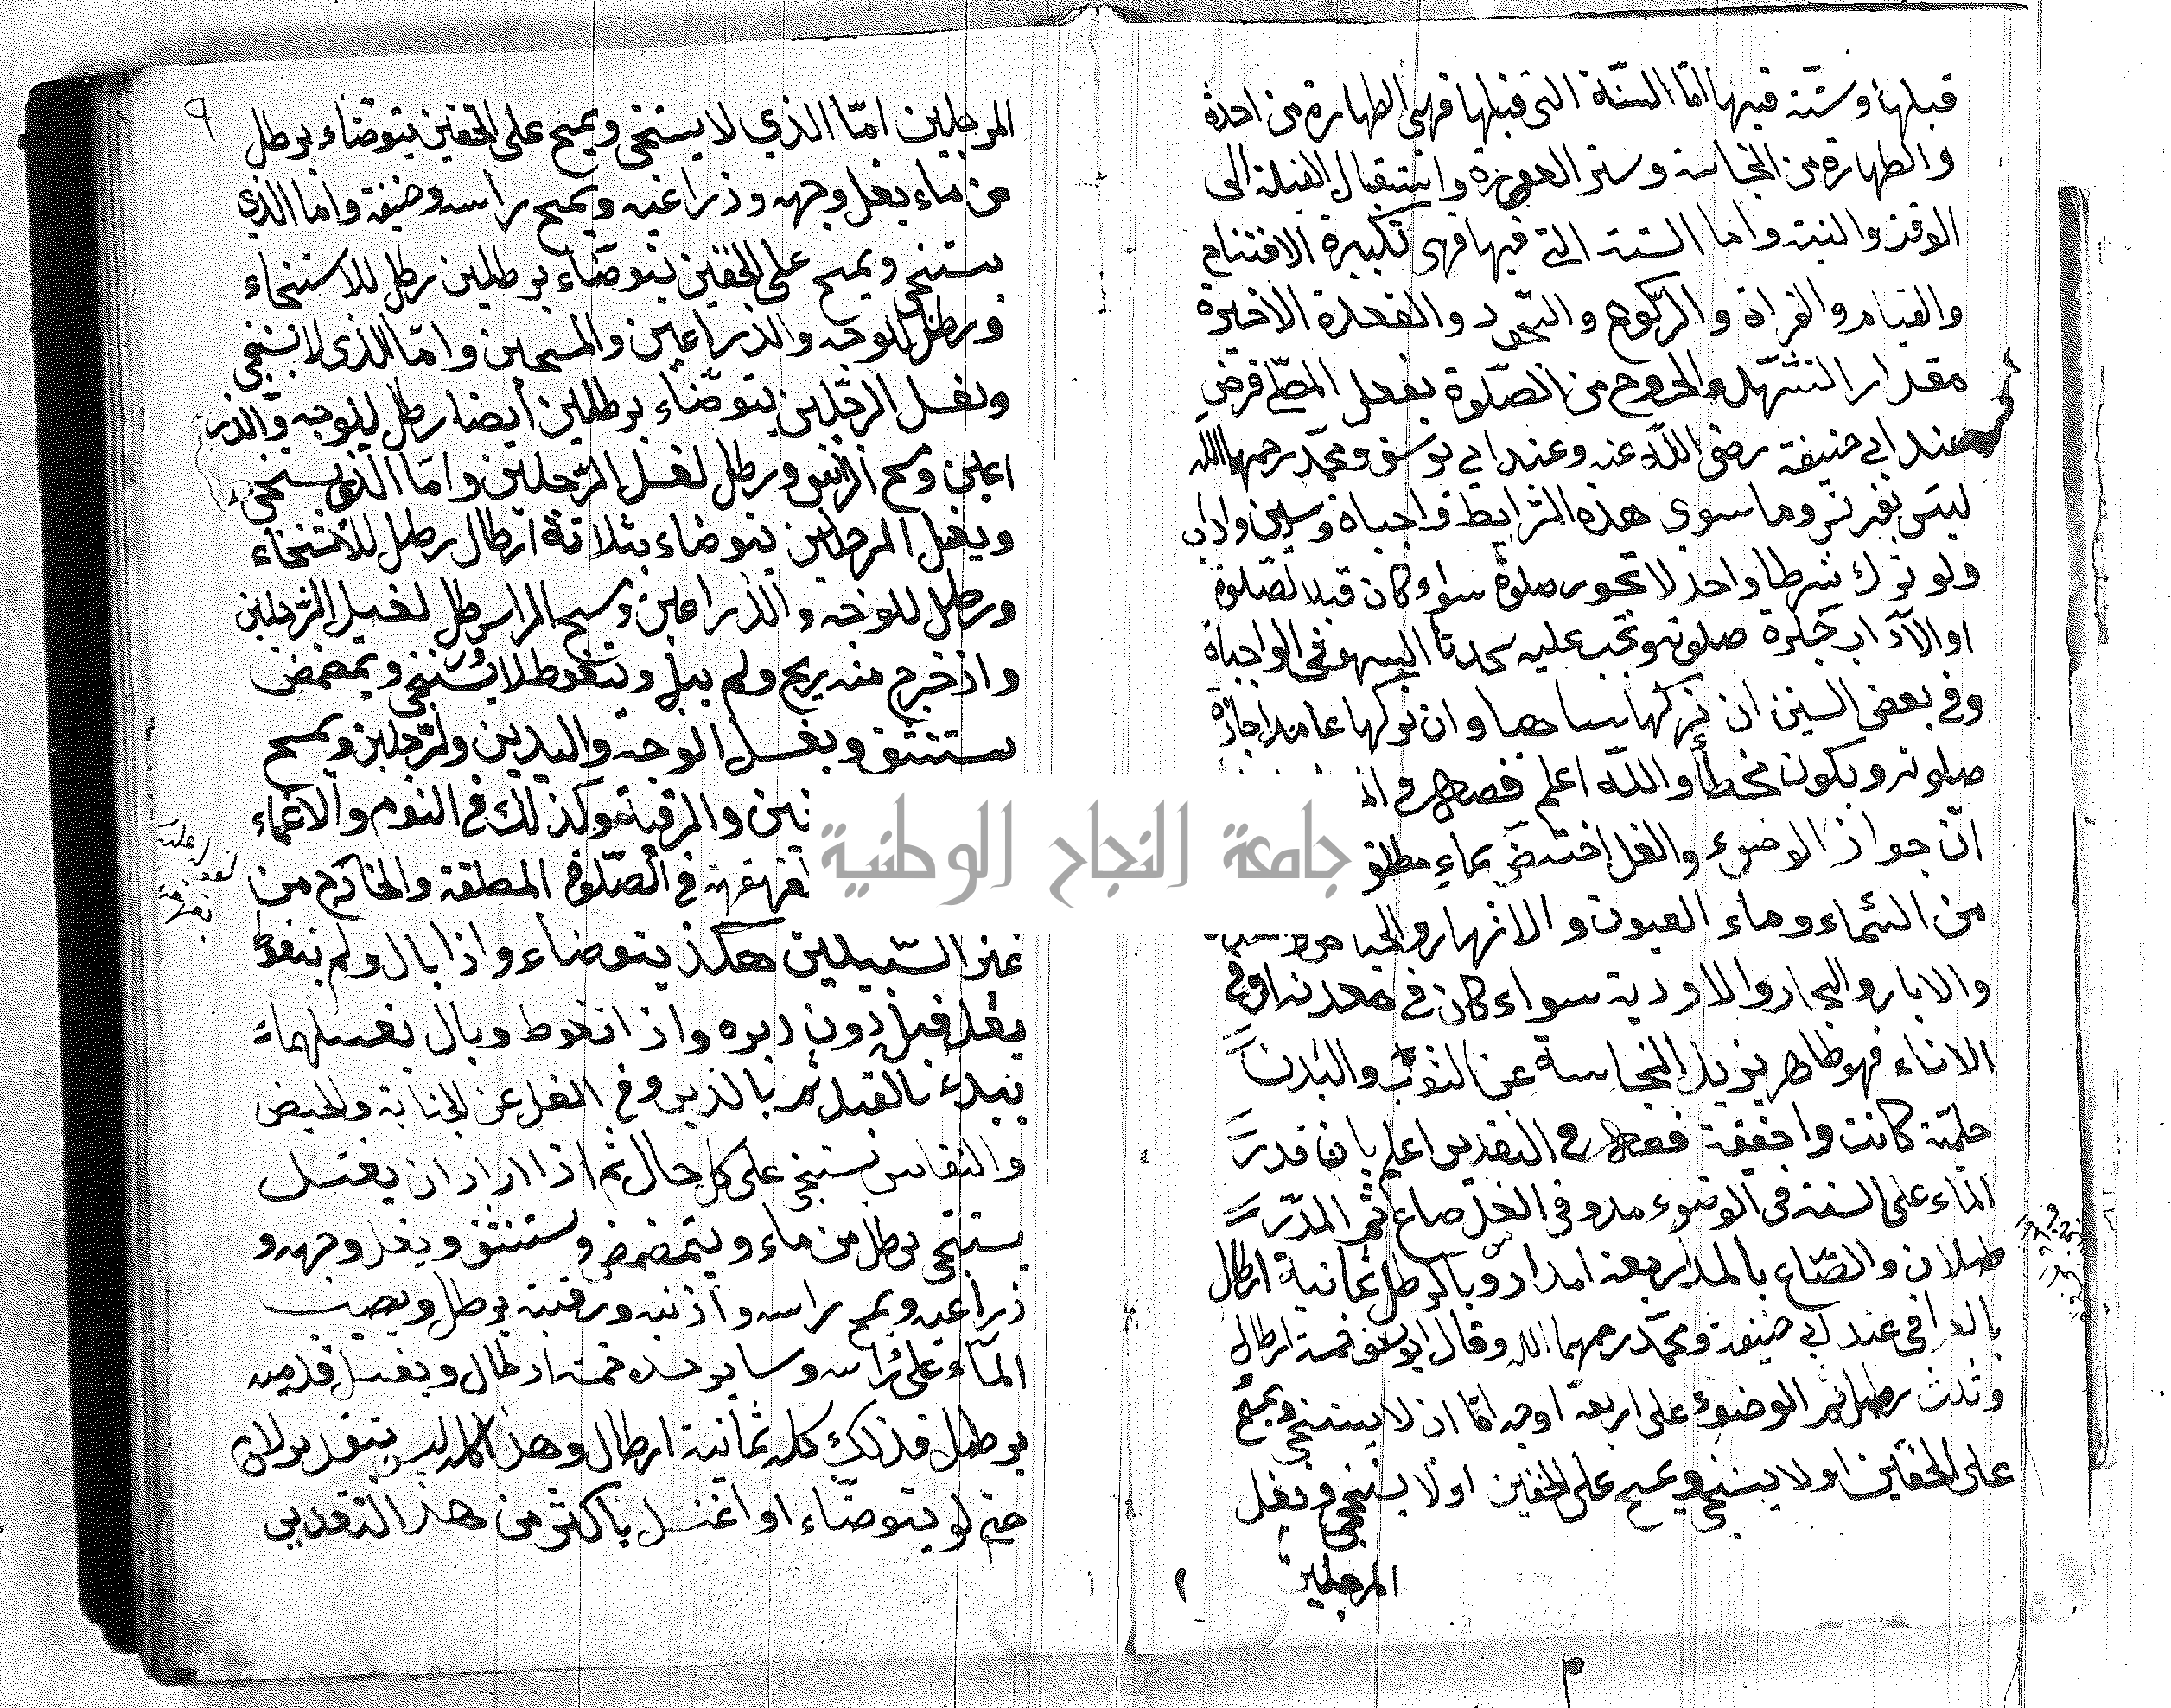 قبلها وستة فيها اما الستة التي قبلها فهي الطهارة من احدث
والطهارة من النجاسة وستر العورة واستقبال القبلة الى
الوقت والنية واما الستة التي فيها فهي تكبيرة الافتتاح
والقيام والقراة والركوع والسجود والقعدة الاخيرة
مقدار التشهد والخروج من الصلوة بفعل المصلي فرض
عند ابي حنيفة رضى الله عنه وعند ابي يوسف ومحمد رحمهما الله
ليس بفرض وما سوى هذه الشرايط واجباة وسنن واداب
ولو ترك شرطا واحد لا تجوز صلوة سواء كان قبل الصلوة
او الآداب صلوته وتجب عليه سجدتا السهو في الواجباة
وفي بعض السنن ان تركها ساهيا وان تركها عامدا جازة
صلوته ويكون مخطأ والله اعلم فصل في
ان جواز الوضوء والغسل بماء مطلق
من السماء وماء العيون والانهار
والابار والبحار والاودية سواء كان في معدنه او في
الاناء فهو طاهر يزيل النجاسة عن الثوب والبدن
كانت او خفيفة فصل في التقدير اعلم بان قدر
الماء على السنة في الوضوء مد وفي الغسل صاع ثم المد ر
طلان والصاع بالمد اربعة امداد وبالرطل ثمانية ارطال
عند ابي حنيفة ومحمد رحمهما الله وقال ابو يوسف خمسة ارطال
وثلث رطل ثم الوضوء على اربعة اوجه اما ان لا يستنجي ويمسح
على الخفين او لا يستنجي ويمسح على الخفين او لا يستنجي ويغسل
المرجلين
٩
المرجلين امّا الذي لا يستنجى ويمسح على الخفين يتوضاء برطل
من ماء يغسل وجهه وذراعيه ويمسح راسه وخفيه واما الذي
يستنجي ويمسح على الخفين يتوضاء برطلين رطل للاستنجاء
ورطل للوجه والذراعين والمسحين وامّا الذي لا يستنجي
ويغسل الرجلين يتوضاء برطلين أيضا رطل للوجه والذر
اعين ومسح الرأس ورطل لغسل الرجلين وامّا الذي يستنجي
ويغسل المرجلين يتوضاء بثلاثة ارطال رطل للاستنجاء
ورطل للوجه والذراعين ومسح الراس رطل لغسل الرجلين
واذ خرج منه ريح ولم يبل ويتغوط لا يستنجي ويمضمض
ستنشق ويغسل الوجه واليدين والرجلين ويمسح
نين والرقبة وكذلك في النوم والاغماء
قهقهة في الصلوة المطلقة والخارج من
غير السبيلين هكذ يتوضاء واذا بال ولم يتغوط
يغسل قبل دون دبره واذ اتغوط وبال يغسلهما
يبدء بالقبل ثم بالدبر وفي الغسل عن الجنابة والحيض
والنفاس يستنجي على كل حال ثم اذا اراد ان يغتسل
يستنجي برطل من ماء ويتمضمض وستنشق ويغسل وجهه و
ذراعيه ويمسح راسه وأذنيه ورقبته برطل ويصب
المآء على رأسه وساير جسده خمسة ارطال ويغسل قدميه
برطل فذلك كله ثمانية ارطال وهذا كله ليس بتقدير لازم
حتى لو يتوضاء او اغتسل باكثر من هذ التقدير
جامعة النجاح الوطنية